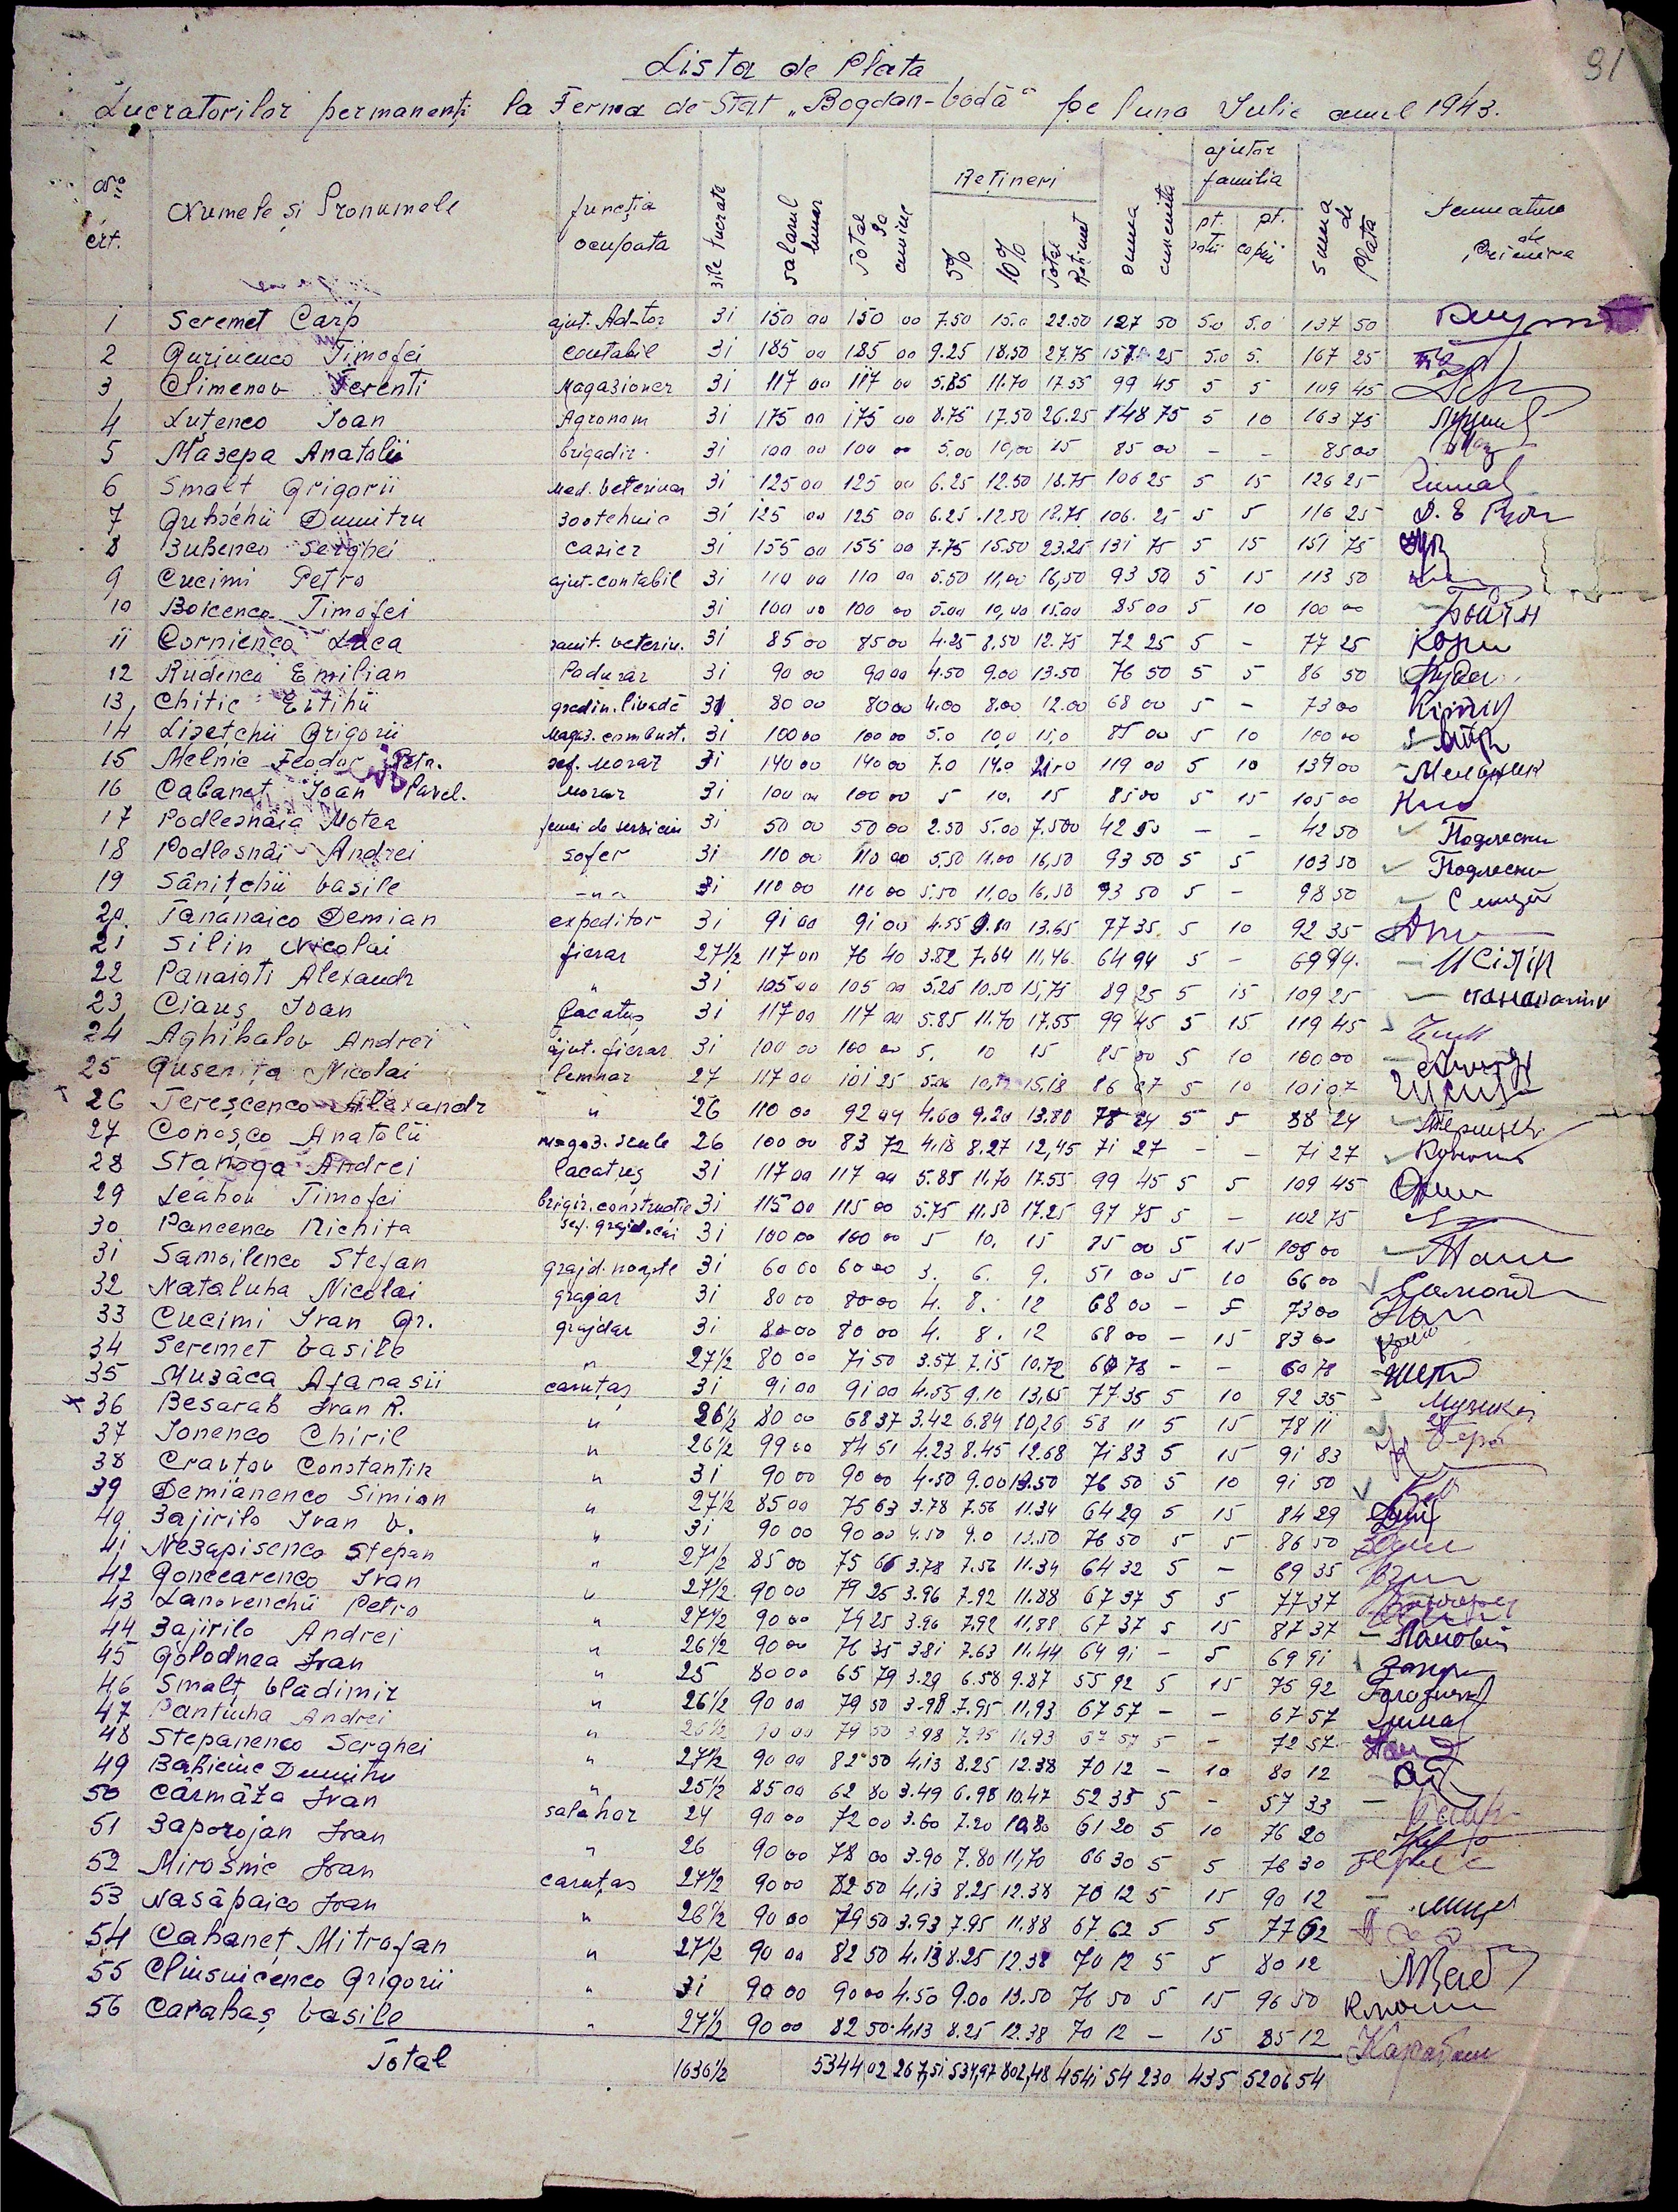 91
Lista de Plata
Lucratorilor permanenți la Ferma de Stat „Bogdan-Vodă" pe luna Iulie anul 1943.
No crt. Numele și Pronumele funcția ocupata zile lucrate salarul lunar Total la Rețineri 5% 10% Total Reținut suma cuvenita ajutor familia pt. soții pt. copii suma de Plata Semnatura de Primirea
1 Seremet Carp ajut. Ad-tor 31 150 00 150 00 7.50 15.0 22.50 127 50 5.0 5.0 137 50
2 Guriucuco Timofei Contabil 31 185 00 185 00 9.25 18.50 27.75 157 25 5.0 5. 167 25
3 Climenov Terenti Magazioner 31 117 00 117 00 5.85 11.70 17.55 99 45 5 5 109 45
4 Luțenco Ioan Agronom 31 175 00 175 00 8.75 17.50 26.25 148 75 5 10 163 75
5 Mazepa Anatolii brigadir. 31 100 00 100 00 5.00 10,00 15 85 00 – – 85 00
6 Smalt Grigorii Med. Veterinar 31 125 00 125 00 6.25 12.50 18.75 106 25 5 15 126 25
7 Gubschii Dumitru Zootehnic 31 125 00 125 00 6.25 12.50 18.75 106. 25 5 5 116 25
8 Zubenco Serghei Casier 31 155 00 155 00 7.75 15.50 23.25 131 75 5 15 151 75
9 Cucimi Petro ajut-contabil 31 110 00 110 00 5.50 11,00 16,50 93 50 5 15 113 50
10 Boicenco Timofei 31 100 00 100 00 5.00 10,00 15.00 85 00 5 10 100 00
11 Cornienco Luca sanit. veterin. 31 85 00 85 00 4.25 8.50 12.75 72 25 5 – 77 25
12 Rudenco Emilian Padurar 31 90 00 90 00 4.50 9.00 13.50 76 50 5 5 86 50
13 Chitic Eftihii gradin. livadă 31 80 00 80 00 4.00 8.00 12.00 68 00 5 – 73 00
14 Lisețchii Grigorii Magaz. combust. 31 100 00 100 00 5.0 10,0 15,0 85 00 5 10 100 00
15 Melnic Feodor Petr. șef. Morar 31 140 00 140 00 7.0 14.0 21.0 119 00 5 10 134 00 Мельник
16 Cabaneț Ioan Pavel. Morar 31 100 00 100 00 5 10. 15 85 00 5 15 105 00
17 Podlesnaia Motea femei de serviciu 31 50 00 50 00 2.50 5.00 7,500 42 50 – – 42 50
18 Podlesnâi Andrei șofer 31 110 00 110 00 5,50 11.00 16,50 93 50 5 5 103 50
19 Sânițchii Vasile –„– 31 110 00 110 00 5.50 11,00 16,50 93 50 5 – 98 50
20. Tananaico Demian expeditor 31 91 00 91 00 4.55 9.10 13.65 77 35 5 10 92 35
21 Silin Nicolai fierar 27½ 117 00 76 40 3.82 7.64 11.46 64 94 5 – 69 94
22 Panaioti Alexandr „ 31 105 00 105 00 5.25 10.50 15,75 89 25 5 15 109 25
23 Ciauș Ivan Lacatuș 31 117 00 117 00 5.85 11.70 17.55 99 45 5 15 119 45
24 Aghibalov Andrei ajut. fierar 31 100 00 100 00 5. 10 15 85 00 5 10 100 00
25 Gusenița Nicolai lemnar 27 117 00 101 25 5.06 10,12 15,18 86 07 5 10 101 07
26 Tereșcenco Alexandr „ 26 110 00 92 04 4.60 9.20 13.80 78 24 5 5 88 24
27 Conoșco Anatolii magaz. scule 26 100 00 83 72 4,18 8,27 12,45 71 27 – – 71 27
28 Stanoga Andrei lacatuș 31 117 00 117 00 5.85 11,70 17.55 99 45 5 5 109 45
29 Leahov Timofei brigir. constructie 31 115 00 115 00 5.75 11.50 17.25 97 75 5 – 102 75
30 Pancenco Nichita șef. grajd. cai 31 100 00 100 00 5 10. 15 85 00 5 15 105 00
31 Samoilenco Stefan grajd. noapte 31 60 00 60 00 3. 6. 9. 51 00 5 10 66 00
32 Nataluha Nicolai 31 80 00 80 00 4. 8. 12 68 00 – 5 73 00
33 Cucimi Ivan Gr. grajdar 31 80 00 80 00 4. 8. 12 68 00 – 15 83 00
34 Seremet Vasile „ 27½ 80 00 71 50 3.57 7.15 10.72 60 78 – – 60 78
35 Muzâca Afanasii caruțaș 31 91 00 91 00 4.55 9.10 13,65 77 35 5 10 92 35
36 Besarab Ivan R. „ 26½ 80 00 68 37 3.42 6.84 10,26 58 11 5 15 78 11
37 Ionenco Chiril „ 26½ 99 00 84 51 4.23 8.45 12.68 71 83 5 15 91 83
38 Cravțov Constantin „ 31 90 00 90 00 4.50 9.00 13.50 76 50 5 10 91 50
39 Demianenco Simion „ 27½ 85 00 75 63 3.78 7.56 11.34 64 29 5 15 84 29
40. Zajirilo Ivan V. „ 31 90 00 90 00 4.50 9.0 13.50 76 50 5 5 86 50
41 Nezapisenco Stepan „ 27½ 85 00 75 66 3.78 7.56 11.34 64 32 5 – 69 35
42 Goncearenco Ivan „ 27½ 90 00 79 25 3.96 7.92 11.88 67 37 5 5 77 37
43 Lanovenchii Petro „ 27½ 90 00 79 25 3.96 7.92 11,88 67 37 5 15 87 37
44 Zajirilo Andrei „ 26½ 90 00 76 35 3.81 7.63 11.44 64 91 – 5 69 91
45 Golodnea Ivan „ 25 80 00 65 79 3.29 6.58 9.87 55 92 5 15 75 92
46 Smalț Vladimir „ 26½ 90 00 79 50 3.98 7.95 11,93 67 57 – – 67 57
47 Pantiuha Andrei „ 26½ 90 00 79 50 3.98 7.95 11,93 67 57 5 – 72 57
48 Stepanenco Serghei „ 27½ 90 00 82 50 4,13 8.25 12.38 70 12 – 10 80 12
49 Dumitru „ 25½ 85 00 62 80 3.49 6.98 10.47 52 33 5 – 57 33
50 Cârmâza Ivan salahor 24 90 00 72 00 3.60 7.20 10,80 61 20 5 10 76 20
51 Zaporojan Ivan „ 26 90 00 78 00 3.90 7.80 11,70 66 30 5 5 76 30
52 Miroșnic Ivan caruțaș 27½ 90 00 82 50 4,13 8.25 12.38 70 12 5 15 90 12
53 Nasâpaico Ivan „ 26½ 90 00 79 50 3.93 7.95 11.88 67 62 5 5 77 62
54 Cabaneț Mitrofan „ 27½ 90 00 82 50 4.13 8.25 12.38 70 12 5 5 80 12
55 Grigorii „ 31 90 00 90 00 4.50 9.00 13.50 76 50 5 15 96 50
56 Carabaș Vasile „ 27½ 90 00 82 50 4,13 8.25 12.38 70 12 – 15 85 12 Карабаш
Total 1636½ 5344 02 267,51 534,97 802,48 4541 54 230 435 5206 54